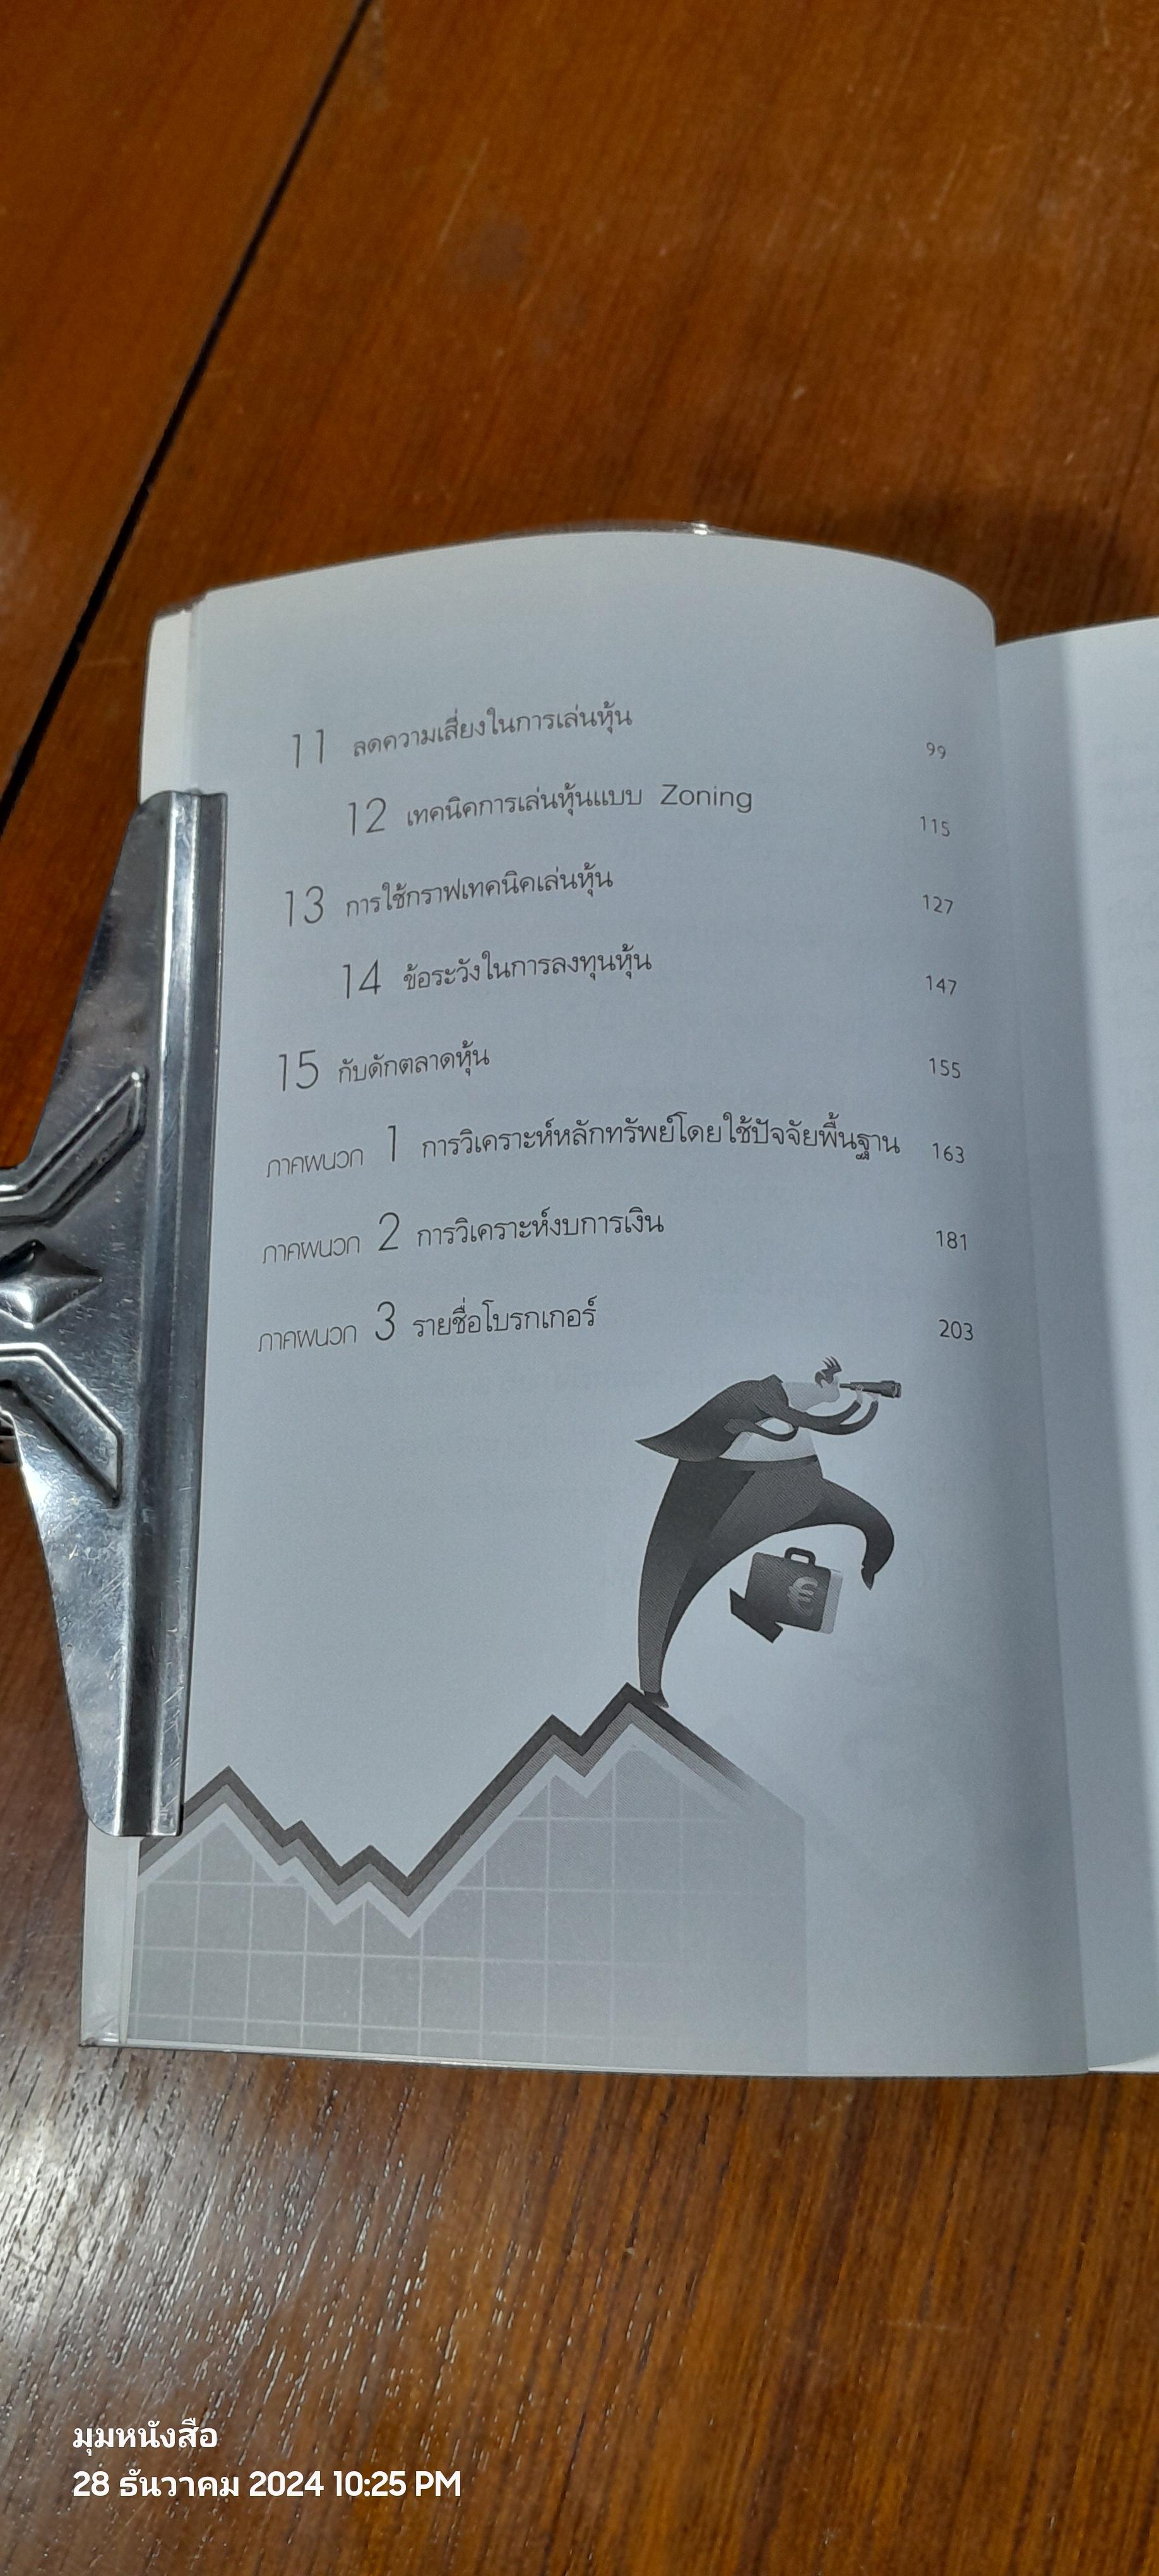 11 ลดความเสี่ยงในการเล่นหุ้น 99
12 เทคนิคการเล่นหุ้นแบบ Zoning 115
13 การใช้กราฟเทคนิคเล่นหุ้น 127
14 ข้อระวังในการลงทุนหุ้น 147
15 กับดักตลาดหุ้น 155
ภาคผนวก 1 การวิเคราะห์หลักทรัพย์โดยใช้ปัจจัยพื้นฐาน 163
ภาคผนวก 2 การวิเคราะห์งบการเงิน 181
ภาคผนวก 3 รายชื่อโบรกเกอร์ 203
€
มุมหนังสือ
28 ธันวาคม 2024 10:25 PM